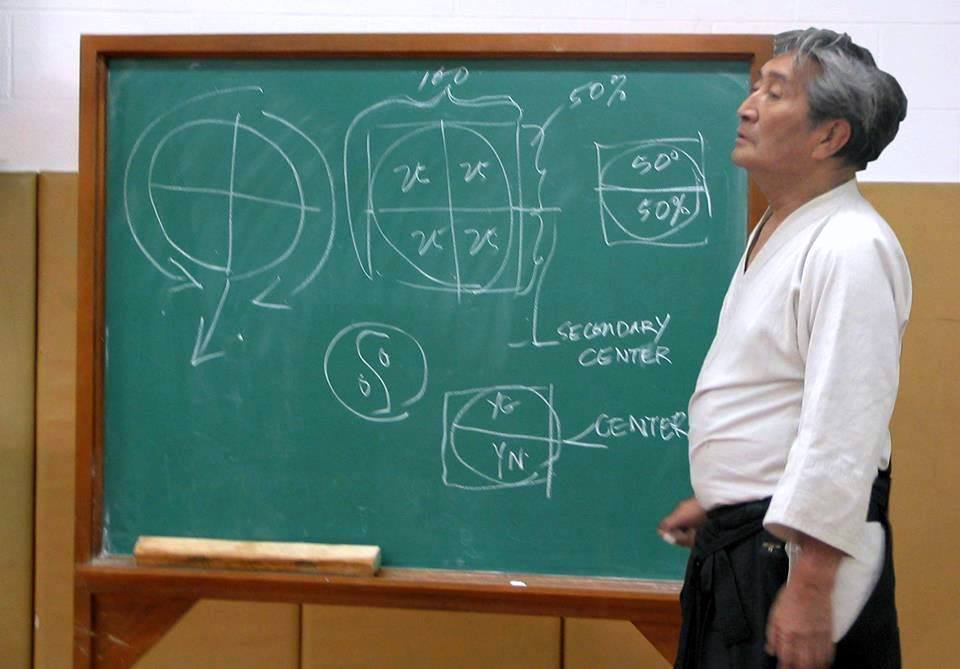 100
50%
25 25
25 25
50%
50%
SECONDARY
CENTER
YG
YN
CENTER